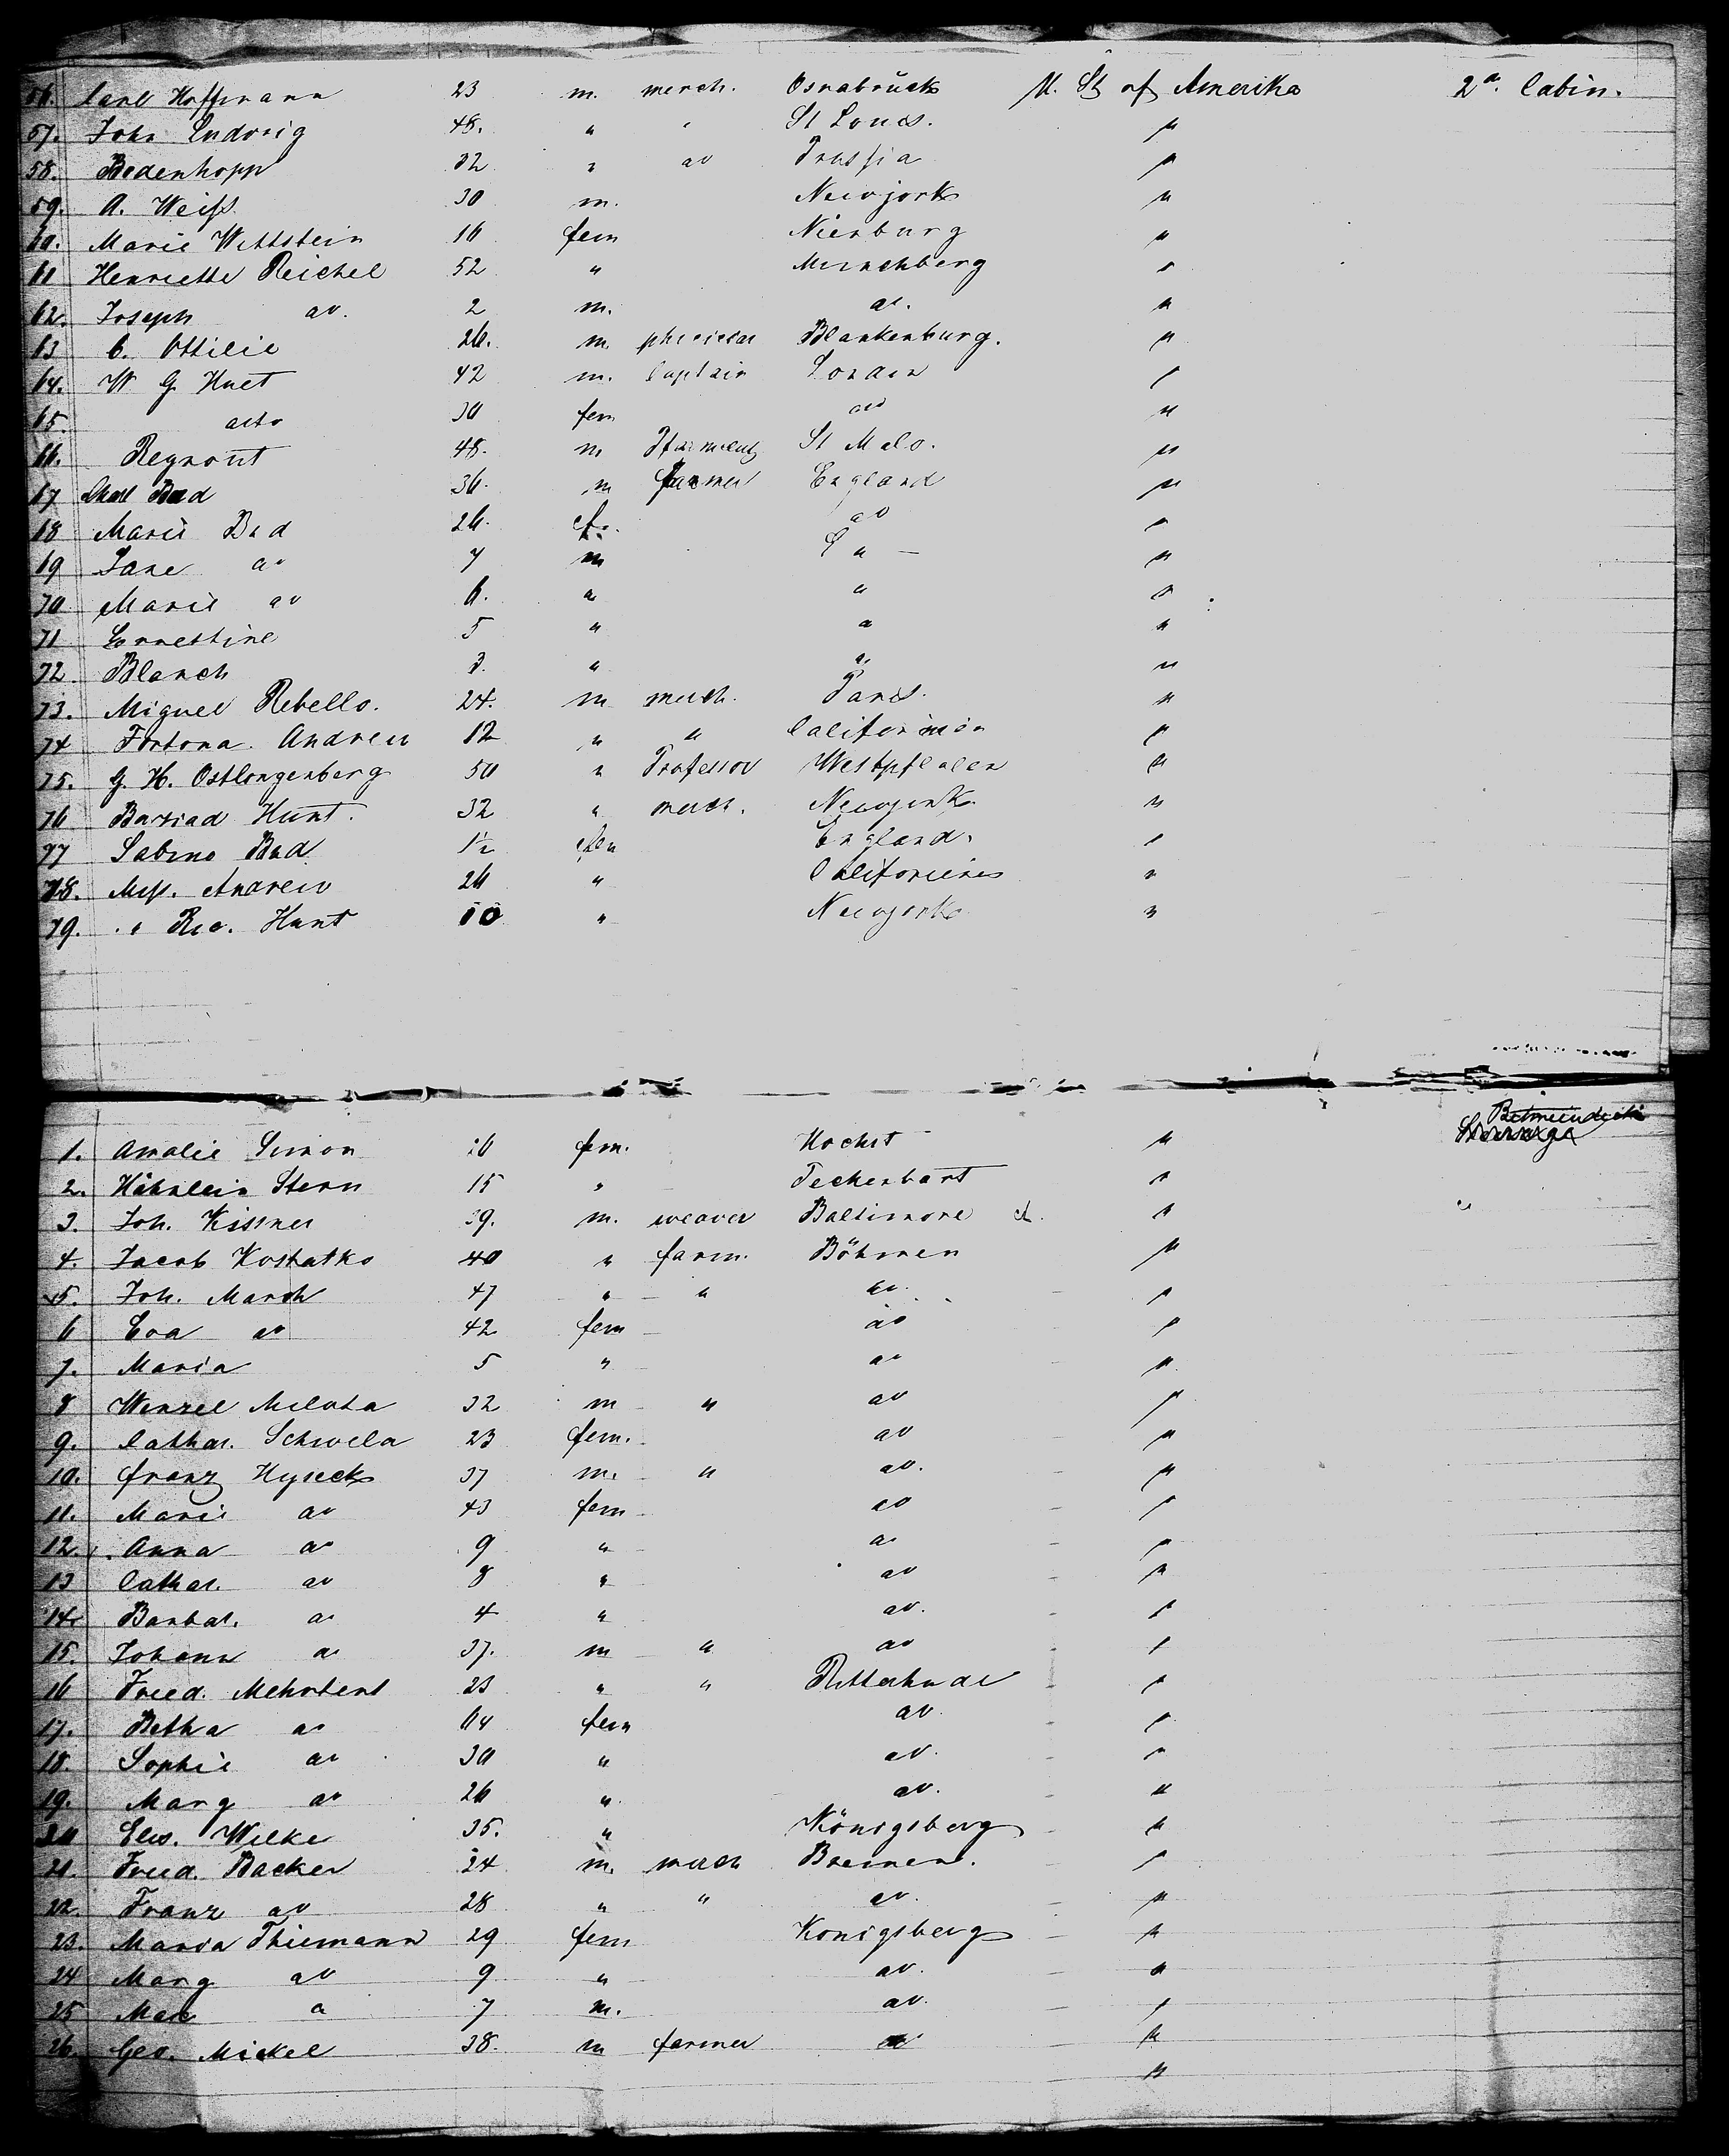 56. Carl Hoffmann 23 m. merch. Osnabrück U. St of Amerika 2ª. Cabin.
57. John Ludwig 48. " " St Louis. "
58. Bedenhopp 32 " do Prussia "
59. A. Weiss 30 m. Newjork "
60. Marie Wettstein 16 fem Nienburg "
61 Henriette Reichel 52 " Munchberg "
62. Joseph do. 2 m. do. "
63 C. Ottilie 26. m. Blankenburg. "
64. W G Huet 42 m. Captain London "
65. ditto 30 fem do "
66. Regnont 48. m St Malo. "
67 Charl Bud 36. m farmer England "
68 Marie Bud 26. fe. do "
69 Jane do 7 m "
70 Marie do 6. " " "
71 Ernestine 5 " " "
72. Blanch 3. " " "
73. Miguel Rebello. 24. m merch. Paris. "
74 Fortona Andrew 12 " " California "
75. G. H. Ostlongenberg 50 " Professor Westpfalen "
76 Hunt. 32 " merch. Newjork "
77 Sabino Bud 1½ fem England. "
78. Miss. Andrew 26 " Californien "
79. " Hunt 10 " Newjork "
1. Amalie Simon 20 fem. Hochst "
2. Hähnlein Stern 15 " "
3. Joh. Kissner 39. m. weaver Baltimore " "
4. Jacob Kostatko 40 " farm. Böhmen "
5. Joh. March 47 " " do. "
6 Eva do 42 fem do "
7. Maria 5 " do "
8 Wenzel Milota 32 m " do "
9. Cathar. Schwela 23 fem. do "
10. Franz Hyseck 37 m. " do. "
11. Marie do 43 fem do "
12. Anna do 9 " do "
13 Cathar. do 8 " do "
14. Barbar. do 4 " do. "
15. Johann do 37. m " do "
16 Fried. Mehrtens 23 " " Ritterhude "
17. Betha do 64 fem do "
18. Sophie do 30 " do. "
19. Marg do 26 " do. "
20 Elis. Wilke 35. " Königsberg "
21. Fried. Backer 24 m. merch Bremen. "
22. Franz do 28 " " do. "
23. Maria Thiemann 29 fem Konigsberg "
24 Marg do 9 " do. "
25 Max do 7 m. do. "
26. Geo. Mickel 38. m farmer "
"